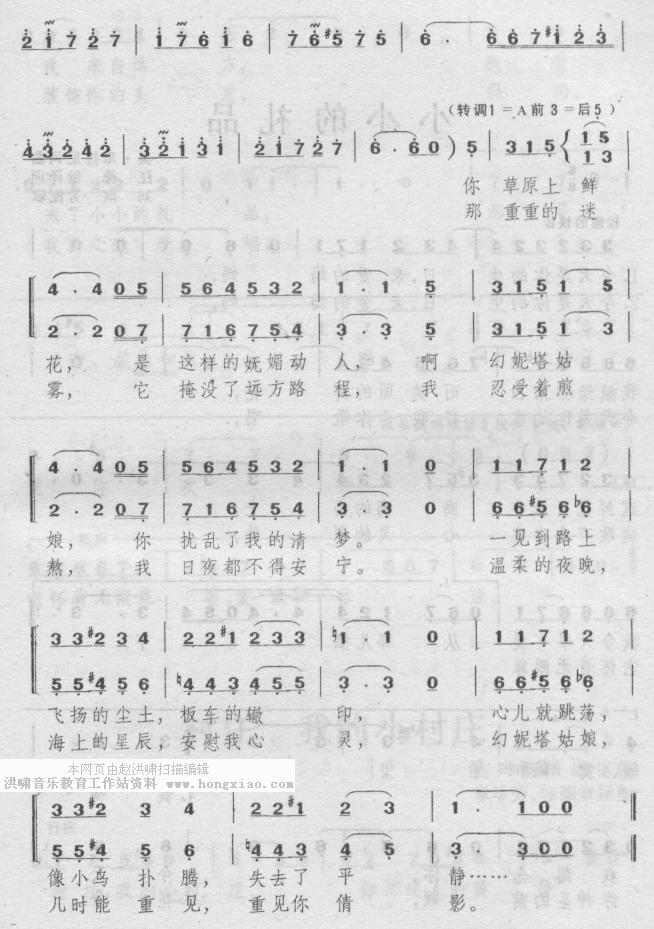 2 1 7 2 7 | 1 7 6 1 6 | 7 6 #5 7 5 | 6· 6 6 7 #1 2 3 |
(转调1=A前3=后5)
4 3 2 4 2 | 3 2 1 3 1 | 2 1 7 2 7 | 6·6 0 ) 5 | 3 1 5 { 1 5
1 3
你 草原上 鲜
那 重重的 迷
4·4 0 5 | 5 6 4 5 3 2 | 1·1 5 | 3 1 5 1 5
2·2 0 7 | 7 1 6 7 5 4 | 3·3 5 | 3 1 5 1 3
花, 是 这样的妩媚动 人, 啊 幻妮塔姑
雾, 它 掩没了远方路 程, 我 忍受着煎
4·4 0 5 | 5 6 4 5 3 2 | 1·1 0 | 1 1 7 1 2
2·2 0 7 | 7 1 6 7 5 4 | 3·3 0 | 6 6 #5 6 ♭6
娘, 你 扰乱了我的清 梦。 一见到路上
熬, 我 日夜都不得安 宁。 温柔的夜晚,
3 3 #2 3 4 | 2 2 #1 2 3 3 | ♮1·1 0 | 1 1 7 1 2
5 5 #4 5 6 | ♮4 4 3 4 5 5 | 3·3 0 | 6 6 #5 6 ♭6
飞扬的尘土, 板车的辙 印, 心儿就跳荡,
海上的星辰, 安慰我心 灵, 幻妮塔姑娘,
本网页由赵洪啸扫描编辑
洪啸音乐教育工作站资料 www.hongxiao.com
3 3 #2 3 4 | 2 2 #1 2 3 | 1· 1 0 0 ‖
5 5 #4 5 6 | ♮4 4 3 4 5 | 3· 3 0 0 ‖
像小鸟 扑 腾, 失去了 平 静……
儿时能 重 见, 重见你 倩 影。